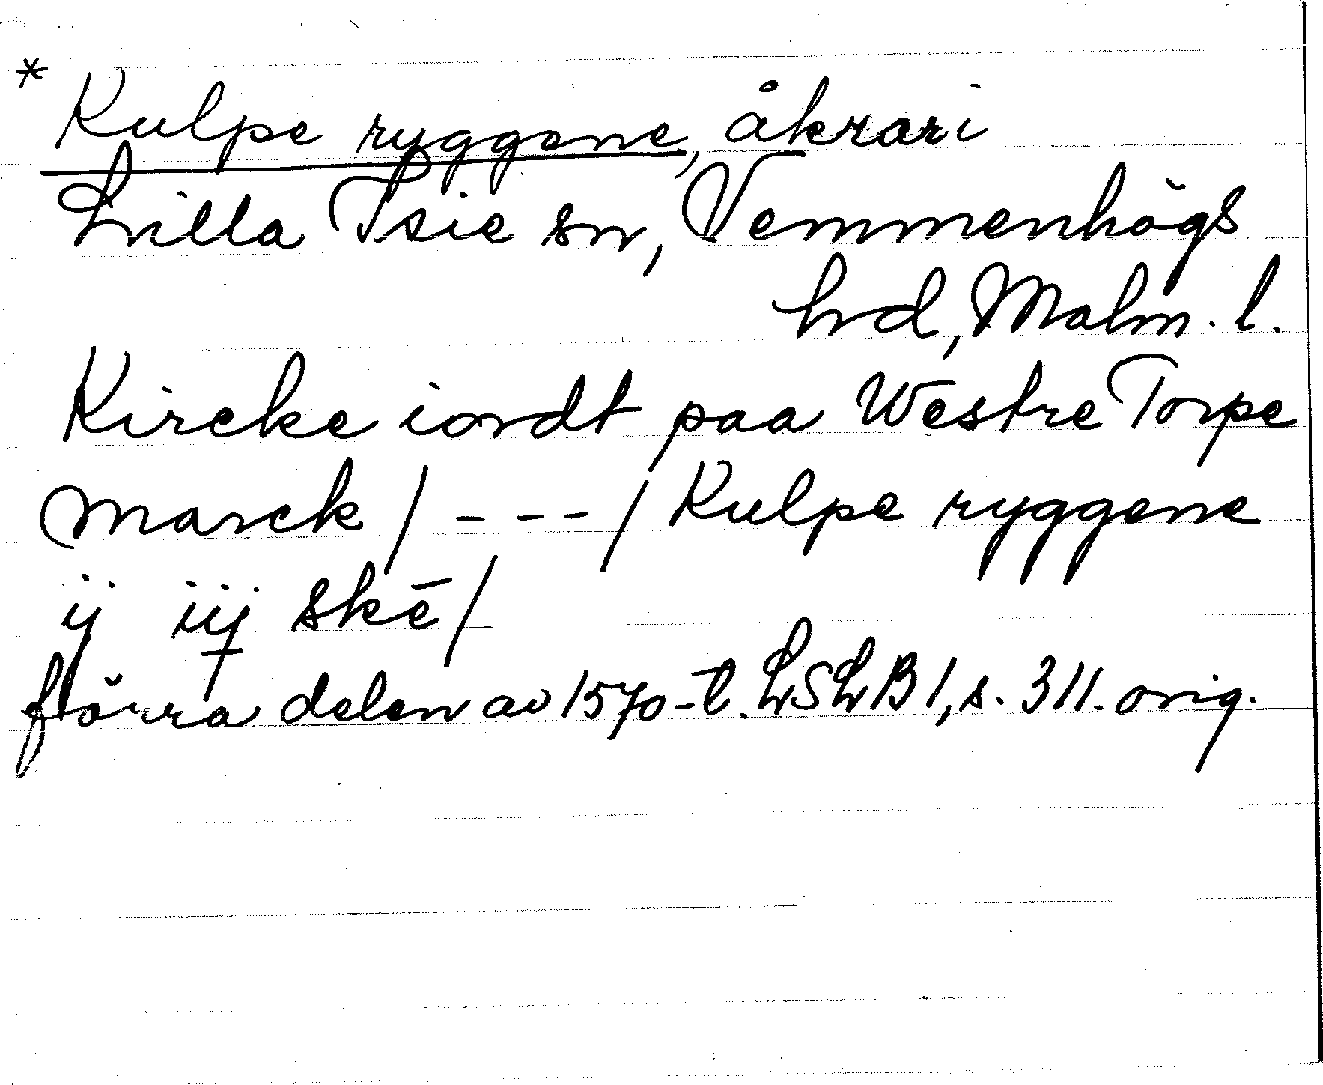 * Kulpe ryggene, åkrar i
Lilla Isie sn, Vemmenhögs
hd, Malm. l.
Kircke iordt paa Westre Torpe
marck / - - - / Kulpe ryggene
ij iij skē /
förra delen av 1570-t. LSLB 1, s. 311. orig.